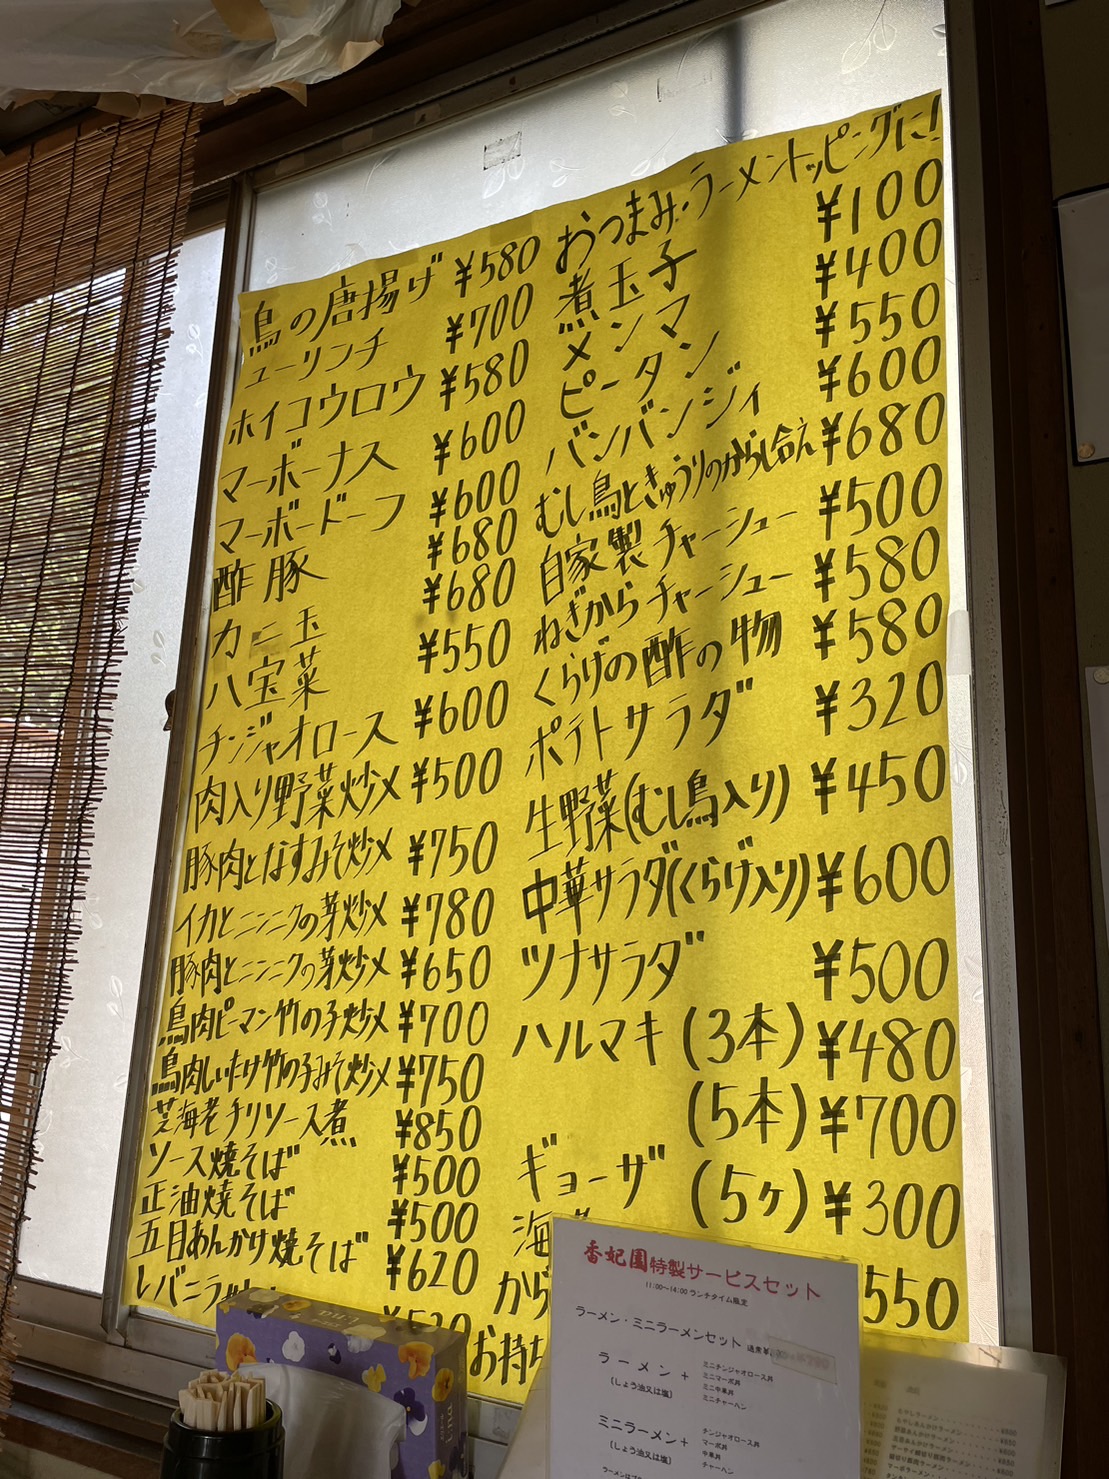 鳥の唐揚げ ¥580
ユーリンチ ¥700
ホイコウロウ ¥580
マーボーナス ¥600
マーボードーフ ¥600
酢豚 ¥680
カニ玉 ¥680
八宝菜 ¥550
チンジャオロース ¥600
肉入り野菜炒メ ¥500
豚肉となすみそ炒メ ¥750
イカとニンニクの芽炒メ ¥780
豚肉とニンニクの芽炒メ ¥650
鳥肉ピーマン竹の子炒メ ¥700
鳥肉しいたけ竹の子みそ炒メ ¥750
芝海老チリソース煮 ¥850
ソース焼そば ¥500
正油焼そば ¥500
五目あんかけ焼そば ¥620
レバニラ
おつまみ・ラーメントッピングに!
煮玉子 ¥100
メンマ ¥400
ピータン ¥550
バンバンジィ ¥600
むし鳥ときゅうりのからし合え ¥680
自家製チャーシュー ¥500
ねぎからチャーシュー ¥580
くらげの酢の物 ¥580
ポテトサラダ ¥320
生野菜(むし鳥入り) ¥450
中華サラダ(くらげ入り) ¥600
ツナサラダ ¥500
ハルマキ (3本) ¥480
(5本) ¥700
ギョーザ (5ヶ) ¥300
海
から 550
お持ち
香妃園特製サービスセット
11:00〜14:00 ランチタイム限定
ラーメン・ミニラーメンセット
ラーメン +
(しょう油又は塩)
ミニチンジャオロース丼
ミニマーボ丼
ミニ中華丼
ミニチャーハン
ミニラーメン +
(しょう油又は塩)
チンジャオロース丼
マーボ丼
中華丼
チャーハン